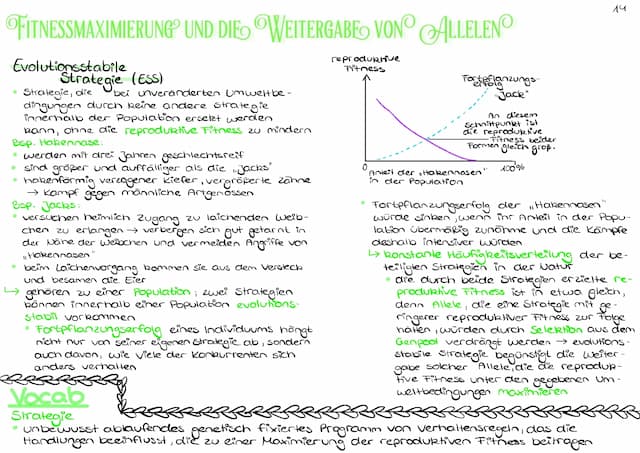 14
Fitnessmaximierung und die Weitergabe von Allelen
Evolutionsstabile
Strategie (ESS)
• Strategie, die bei unveränderten Umweltbe-
dingungen durch keine andere Strategie
innerhalb der Population ersetzt werden
kann, ohne die reproduktive Fitness zu mindern
Bsp. Hakennase:
• werden mit drei Jahren geschlechtsreif
• sind größer und auffälliger als die „Jacks"
• hakenförmig verzogener Kiefer, vergrößerte Zähne
→ Kampf gegen männliche Artgenossen
Bsp. Jacks:
• versuchen heimlich Zugang zu laichenden Weib-
chen zu erlangen → verbergen sich gut getarnt in
der Nähe der Weibchen und vermeiden Angriffe von
„Hakennasen"
• beim Laichenvorgang kommen sie aus dem Versteck
und besamen die Eier
↳ gehören zu einer Population, zwei Strategien
können innerhalb einer Population evolutions-
stabil vorkommen
• Fortpflanzungserfolg eines Individuums hängt
nicht nur von seiner eigenen Strategie ab, sondern
auch davon, wie viele der Konkurrenten sich
anders verhalten
reproduktive
Fitness
Fortpflanzungs-
erfolg
„Jack"
An diesem
Schnittpunkt ist
die reproduktive
Fitness beider
Formen gleich groß.
0
100%
Anteil der „Hakennasen"
in der Population
• Fortpflanzungserfolg der „Hakennasen"
würde sinken, wenn ihr Anteil in der Popu-
lation übermäßig zunähme und die Kämpfe
deshalb intensiver würden
↳ konstante Häufigkeitsverteilung der be-
teiligten Strategien in der Natur
• die durch beide Strategien erzielte re-
produktive Fitness ist in etwa gleich,
denn Allele, die eine Strategie mit ge-
ringerer reproduktiver Fitness zur Folge
hätten, würden durch Selektion aus dem
Genpool verdrängt werden → evolutions-
stabile Strategie begünstigt die Weiter-
gabe solcher Allele, die die reproduk-
tive Fitness unter den gegebenen Um-
weltbedingungen maximieren
Vocab
Strategie
• unbewusst ablaufendes genetisch fixiertes Programm von Verhaltensregeln, das die
Handlungen beeinflusst, die zu einer Maximierung der reproduktiven Fitness beitragen